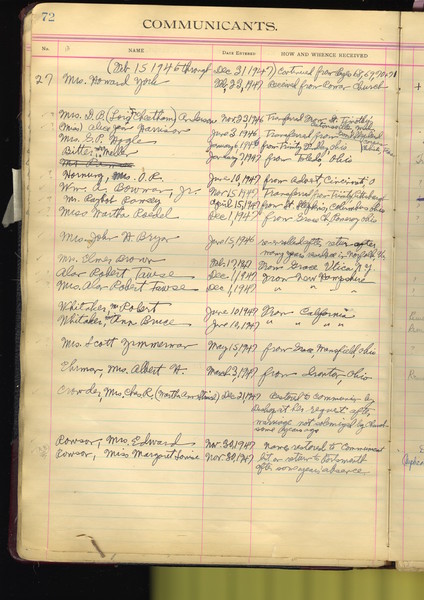 72
COMMUNICANTS.
No. NAME DATE ENTERED HOW AND WHENCE RECEIVED
(Feb. 15 1946 through Dec 31 1947) Continued from pages 68, 69, 70 & 71
27 Mrs. Howard York Feb. 23, 1947 Received from Church
Mrs. D. B. (Cheetham) Anderson Nov. 23, 1946 Transferred from St. Timothy's
Miss Alice Jean Garrison June 3, 1946 Transferred from
Mrs. E. P. 1946 from Trinity, Ohio
Bitter, 1947 from Toledo, Ohio
Hornung, Mrs. O. R. June 10, 1947 from Advent Cincint. O
Wm. A. Bowman Jr. Nov. 15, 1947 Transferred from Trinity
April 15, 1947 from St. Stephen's, Columbus, Ohio
Miss Martha Reidel Dec 1, 1947 from Grace Ch., Pomeroy, Ohio
Mrs. John W Bryan June 15, 1946 re-enrolled after return after
many years residence in Norfolk, Va
Mr. Elmer Brown Feb. 17, 1947 From Grace Utica, N.Y.
Alan Robert Tawse Dec. 1, 1947 From New Hampshire
Mrs. Alan Robert Tawse Dec 1, 1947 " " "
Whitaker, Mr. Robert June 10, 1947 From California
Whitaker, Ann Bruce June 10, 1947 " " "
Mrs. Scott Zimmerman May 15, 1947 from Grace Mansfield, Ohio
Ehrman Mrs. Albert H. March 3, 1947 from Ironton, Ohio
Crowder, Mrs. Chas. R. (Martha Ann) Dec 21, 1947 Restored to communion by
Bishop at his request after
marriage not solemnized by Church
some years ago
Rowson, Mrs. Edward Nov. 30, 1947 names restored to Communicant
Rowson, Miss Margaret Louise Nov. 30, 1947 list on return to Portsmouth
after some years absence